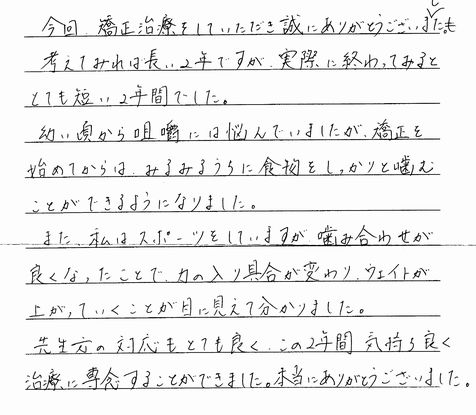 今回、矯正治療をしていただき誠にありがとうございました。
考えてみれば長い2年ですが、実際に終わってみると
とても短い2年間でした。
幼い頃から咀嚼には悩んでいましたが、矯正を
始めてからは、みるみるうちに食物をしっかりと噛む
ことができるようになりました。
また、私はスポーツをしていますが、噛み合わせが
良くなったことで、力の入り具合が変わり、ウェイトが
上がっていくことが目に見えて分かりました。
先生方の対応もとても良く、この2年間気持ち良く
治療に専念することができました。本当にありがとうございました。